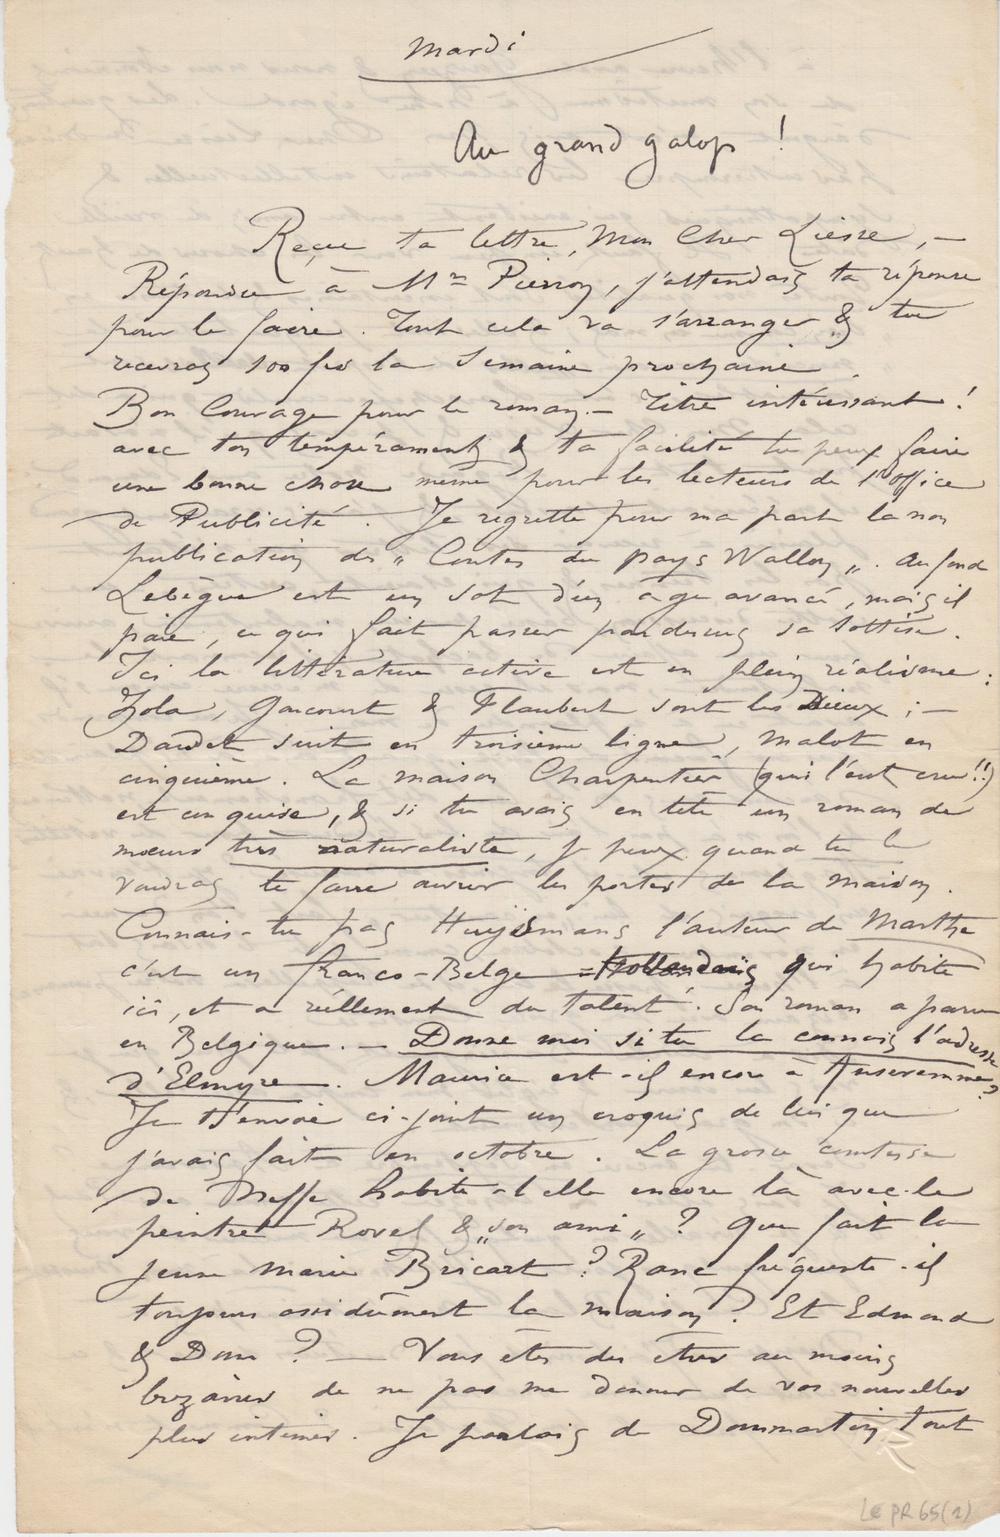 Mardi
Au grand galop !
Reçu ta lettre, Mon Cher Liesse, —
Répondu à Mr Pierron, j'attendais ta réponse
pour le faire. Tout cela va s'arranger & tu
recevras 100 frs la semaine prochaine.
Bon Courage pour le roman. — Titre intéressant !
avec ton tempérament & ta facilité tu peux faire
une bonne chose même pour les lecteurs de l'office
de Publicité. Je regrette pour ma part la non
publication des „ Contes du pays Wallon „. Au fond
Lebègue est un sot d'un âge avancé, mais il
paie, ce qui fait passer par dessus sa sottise.
Ici la littérature active est en plein réalisme :
Zola, Goncourt & Flaubert sont les Dieux ; —
Daudet suit en troisième ligne, Malot en
cinquième. La maison Charpentier (qui l'eut cru !!)
est conquise, & si tu avais en tête un roman de
mœurs très naturaliste, je peux quand tu le
voudras te faire ouvrir les portes de la maison.
Connais-tu pas Huÿsmans l'auteur de Marthe
c'est un franco-Belge - Hollandais qui habite
ici, et a réellement du talent. Son roman a paru
en Belgique. — Donne moi si tu la connais l'adresse
d'Elmyre. Maurice est-il encore à Anseremme ?
Je t'envoie ci-joint un croquis de lui que
j'avais fait en octobre. La grosse comtesse
de Neffe habite-t'elle encore là avec le
peintre Rovel & „ son ami „ ? Que fait la
jeune Marie Bricart ? Ranc fréquente-il
toujours assidûment la maison ? Et Edmond
& Dom ? — Vous êtes des êtres au moins
bizarres de ne pas me donner de vos nouvelles
plus intimes. Je parlais de Dommartin tout
Le PR 65(1)